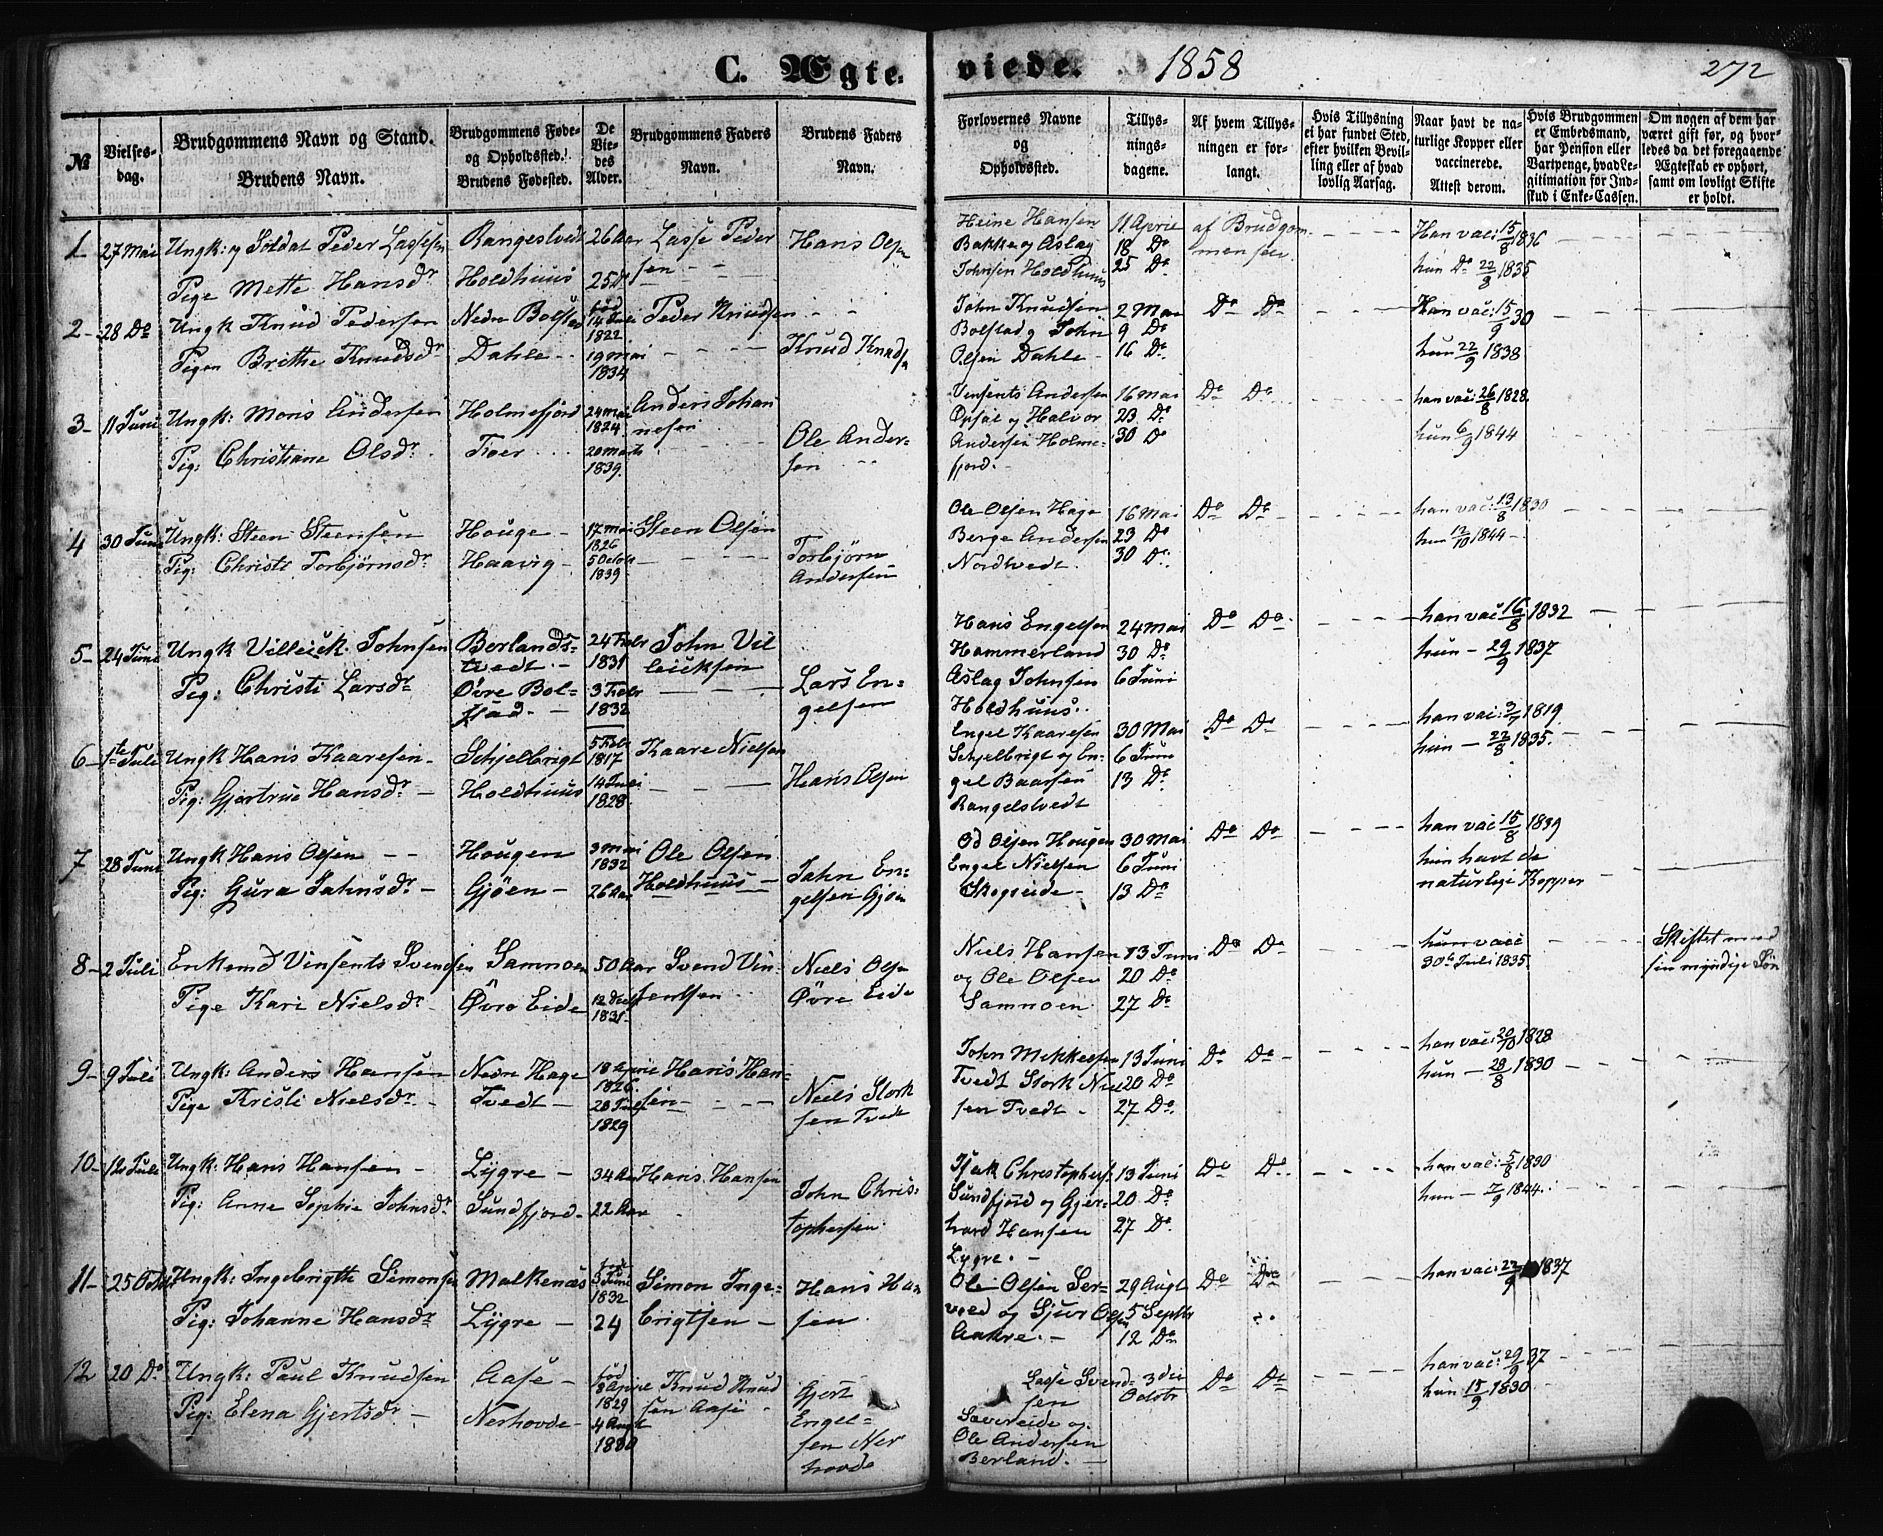 C. Ægteviede. 1858
272
№
Vielsesdag.
Brudgommens Navn og Stand.
Brudens Navn.
Brudgommens Føde- og Opholdssted.
Brudens Fødested.
De Viedes Alder.
Brudgommens Faders Navn.
Brudens Faders Navn.
Forlovernes Navne og Opholdsted.
Tillysningsdagene.
Af hvem Tillysningen er forlangt.
Hvis Tillysning ei har fundet Sted, efter hvilken Bevilling eller af hvad lovlig Aarsag.
Naar havt de naturlige Kopper eller vaccinerede. Attest derom.
Hvis Brudgommen er Embedsmand, har Pension eller Vartpenge, hvad Legitimation for Indskud i Enke-Cassen.
Om nogen af dem har været gift før, og hvorledes da det foregaaende Ægteskab er ophørt, samt om lovligt Skifte er holdt.
1 27 Mai Ungk: og Soldat Peder Lassesen Rangestvedt 26 Aar Lasse Pedersen Hans Olsen
Pige Mette Hansdr Holdhuus 25 Do
Heine Hansen Bakke og Aslag Johnsen Holdhuus
11 April 18 Do 25 Do
af Brudgommen sen.
Han vac: 15/8 1836
hun Do 22/8 1835
2 28 Do Ungk Knud Pedersen Nedre Bolstad fød 14 Juli 1822. Peder Knudsen
Pigen Brithe Knudsdr Dahle 19 Mai 1834 Knud Knudsn
John Knudsen Bolstad og John Olsen Dahle
2 Mai 9 Do 16 Do
Do Do
Han vac: 15/9 30
hun 22/9 1838
3 11 Juni Ungk: Mons Andersen Holmefjord 24 Mai 1824 Anders Johannesen
Pig: Christiane Olsdr. Tver 20 Marts 1839. Ole Andersen
Vinsents Andersen Opsal og Halvor Andersen Holmefjord.
16 Mai 23 Do 30 Do
Do Do
han vac: 26/8 1828.
hun 6/9 1844
4 30 Juni Ungk: Steen Steensen Houge 17 Mai 1826 Steen Olsen
Pig: Christi Torbjørnsdr Haavig 5 Octobr 1839 Torbjørn Andersen
Ole Olsen Hage Berge Andersen Nordtvedt.
16 Mai 23 Do 30 Do
Do Do
han vac: 13/8 1830
hun 12/10 1844
5 24 Juni Ungk Villeick Johnsen Berlandstvedt 24 Febr 1831 John Villeicksen
Pig: Christi Larsdr Øvre Bolstad. 3 Febr 1832 Lars Engelsen
Hans Engelsen Hammerland Aslag Johnsen Holdhuus.
24 Mai 30 Do 6 Juni
Do Do
han vac 16/8 1832
hun 29/9 1837
6 1te Juli Ungk Hans Kaaresen Schjelbrigt 5 Febr 1817 Kaare Nielsen
Pig: Gjertrue Hansdr Holdhuus 14 Juli 1828 Hans Olsen
Engel Kaaresen Schjelbrigt og Engel Baarsen Rangelstvedt
30 Mai 6 Juni 13 Do
Do Do
han vac: 1819
hun 22/8 1835.
7 28 Juni Ungk Hans Olsen Hougen 3 Mai 1832 Ole Olsen Holdhuus
Pig: Gura Jahnsdr Gjøen 26 Aar Jahn Engelsen Gjøen
Od Olsen Hougen Engel Nielsen Skogseide
30 Mai 6 Juni 13 Do
Do Do
han vac 15/8 1839
hun havt de naturlige Kopper
8 2 Juli Enkemd Vinsents Svendsen Samnoen 50 Aar Svend Vinsentsen
Pige Kari Nielsdr Øvre Eide 12 Decb 1831 Niels Olsn Øvre Eide
Niels Hansen og Ole Olsen Samnoen
13 Juni 20 Do 27 Do
Do Do
hun vacc 30te Juli 1835.
Skiftet med sin myndige Søn
9 9 Juli Ungk: Anders Hansen Nedre Hage 18 April 1826. Hans Hansen
Pige Kristi Nielsdr Tvedt 28 Juli 1829 Niels Storksen Tvedt
John Mikkelsen Tvedt Stork Nielsen Tvedt
13 Juni 20 Do 27 Do
Do Do
han vac: 20/10 1828
hun 28/8 1830
10 12 Juli Ungk: Hans Hansen Lygre 34 Aar Hans Hansen
Pig: Anne Sophie Johnsdr Sundfjord 22 Aar John Christophersen
Isak Christophers. Sundfjord og Gjerhard Hansen Lygre.
13 Juni 20 Do 27 Do
Do Do
han vac: 5/8 1830
hun 7/9 1844.
11 25 Octbr Ungk: Ingebrigtte Simonsen Malkenæs fød 3 Juni 1832 Simon Ingebrigtsen
Pig: Johanne Hansdr Lygre 24 Hans Hansen
Ole Olsen Servold og Sjur Olsen Aakre.
29 Augt 5 Septbr 12 Do
Do Do
han vac: 22/9 1837
12 20 Do Ungk: Paul Knudsen Aase fød 8 April 1829 Knud Knudsen Aase
Pig: Elena Gjertsdr Nerhovde 4 Augt 1830 Gjert Engelsen Nerhovde
Lasse Svendsen Sævereide og Ole Andersen Berland.
3die Octobr
Do Do
han vac: 29/9 37
hun 15/9 1830.